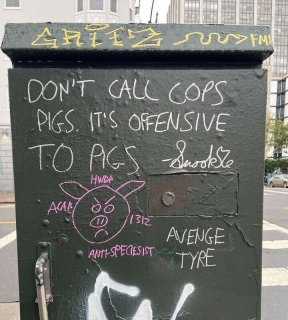 GRITZ FMI
DON'T CALL COPS
PIGS. IT'S OFFENSIVE
TO PIGS -SnookTe
HWDP
ACAB 1312
ANTI-SPECIESIST
AVENGE
TYRE